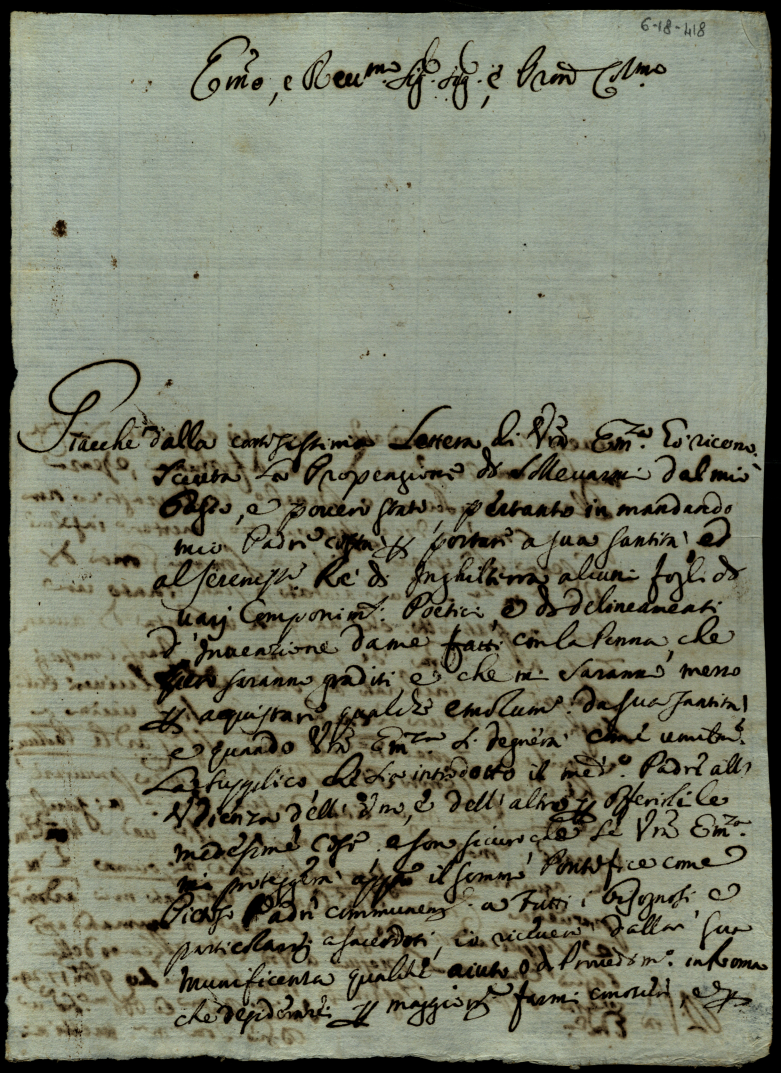 6-18-418
Em͞o, e Reu.mo Sig. Sig. e Pron Col.mo
Giacche dalla cortesissima Lettera di Vrā Em.za hò ricono
sciuta La Propenzione di Sollevarmi dal mio
basso, e povero stato, pertanto in mandando
mio Padre costà per portare a sua Santità, ed
al Sereniss.o Rè di Inghilterra alcuni fogli di
varij Componim.ti Poetici, e di delineamenti
d'Invenzione da me fatti con la Penna, che
spero saranno graditi e che mi saranno mezzo
per aquistare qualche emolum.to da sua Santità,
e quando Vrā Em.za si degnerà come umilm.e
La supplico, che sia introdotto il med.o Padre all'
Udienza dell'uno, e dell'altro per offerirli le
medesime Cose, e son sicuro che se Vrā Em.za
mi proteggerà appō il sommo Pontefice come
Pietoso Padre communem.e a tutti i bisognosi e
particolarm.e a sacerdoti, io riceverò dalla sua
munificenza qualche aiuto o di Provedim.o in Roma
che desidererei per maggiorm.e farmi